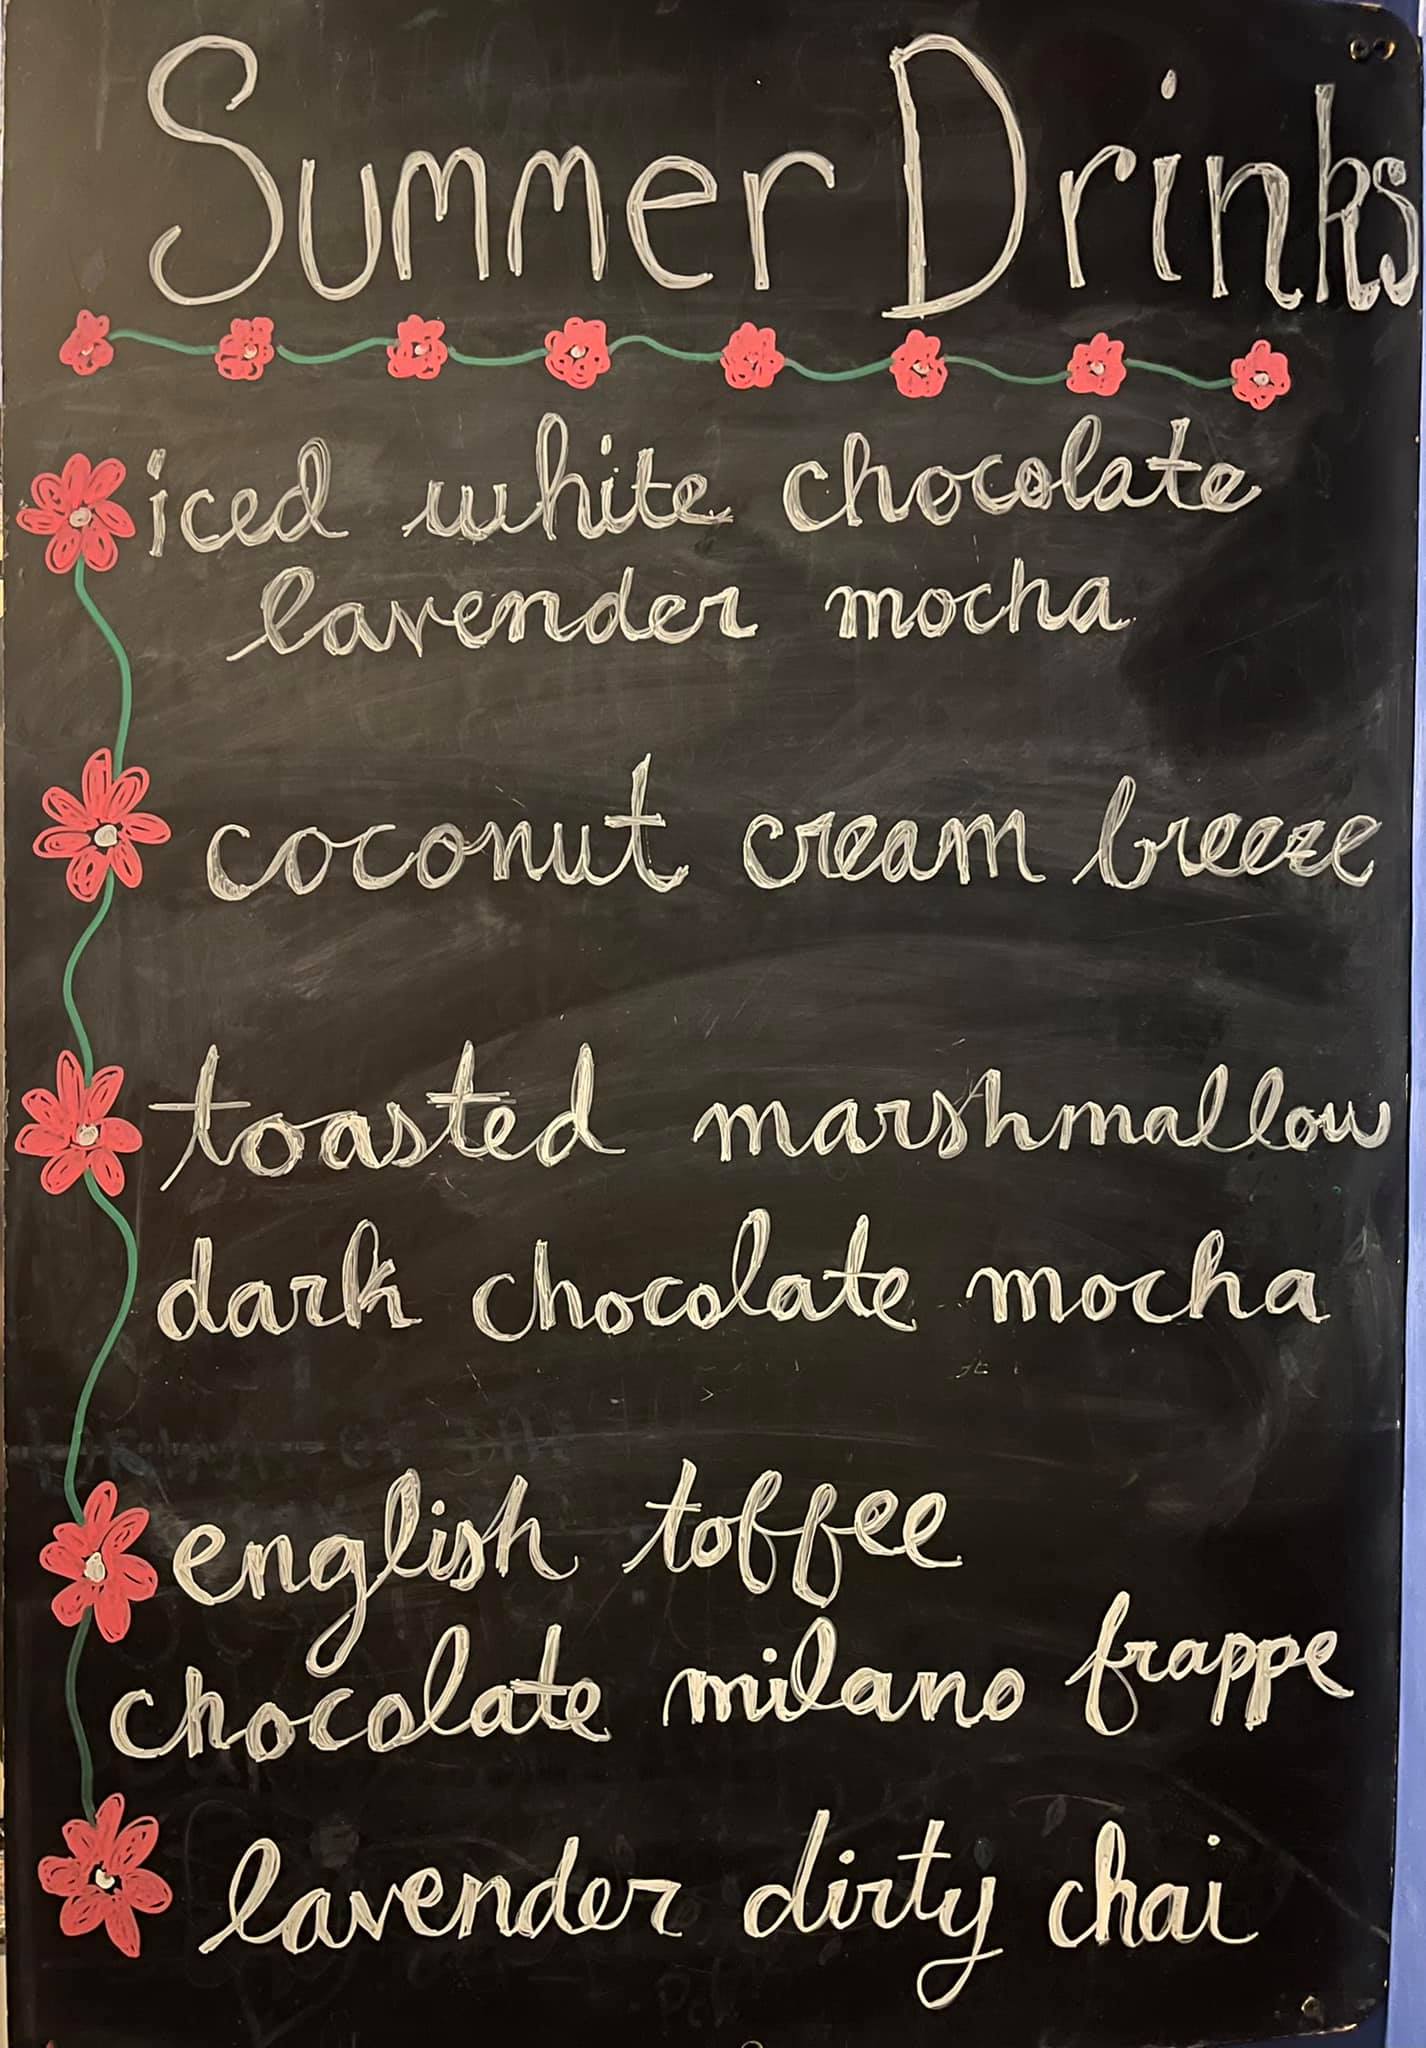 Summer Drinks
iced white chocolate
lavender mocha
coconut cream breeze
toasted marshmallow
dark chocolate mocha
english toffee
chocolate milano frappe
lavender dirty chai